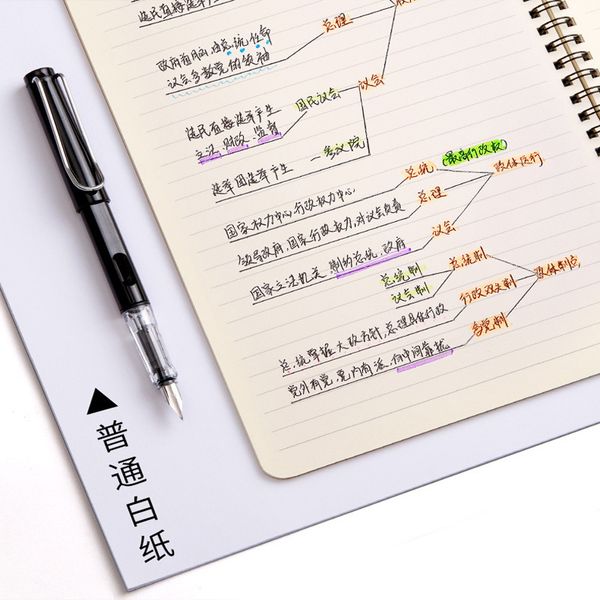 选民直接选举产生
总理
政府首脑,由总统任命
议会多数党的领袖
议会
选民直接选举产生
国民议会
立法、财政、监督
选举团选举产生
参议院
总统
(最高行政权)
政体运行
国家权力中心,行政权力中心
总理
领导政府,国家行政权力,对议会负责
议会
国家立法机关
制约总统,政府
总统制
总统制
议会制
行政双头制
政体制
总统掌握大政方针,总理具体行政
多党制
党外有党,党内有派,向中间靠拢
普通白纸